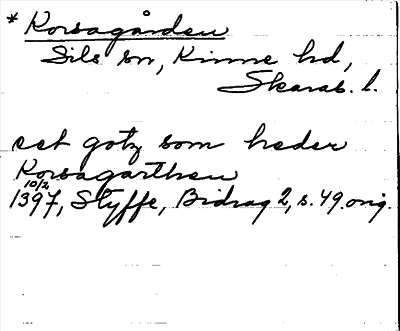 * Korsagården
Sils sn, Kinne hd,
Skarab. l.
eet gotz som heder
Korsagarthen
10/2
1397, Styffe, Bidrag 2, s. 49. orig.